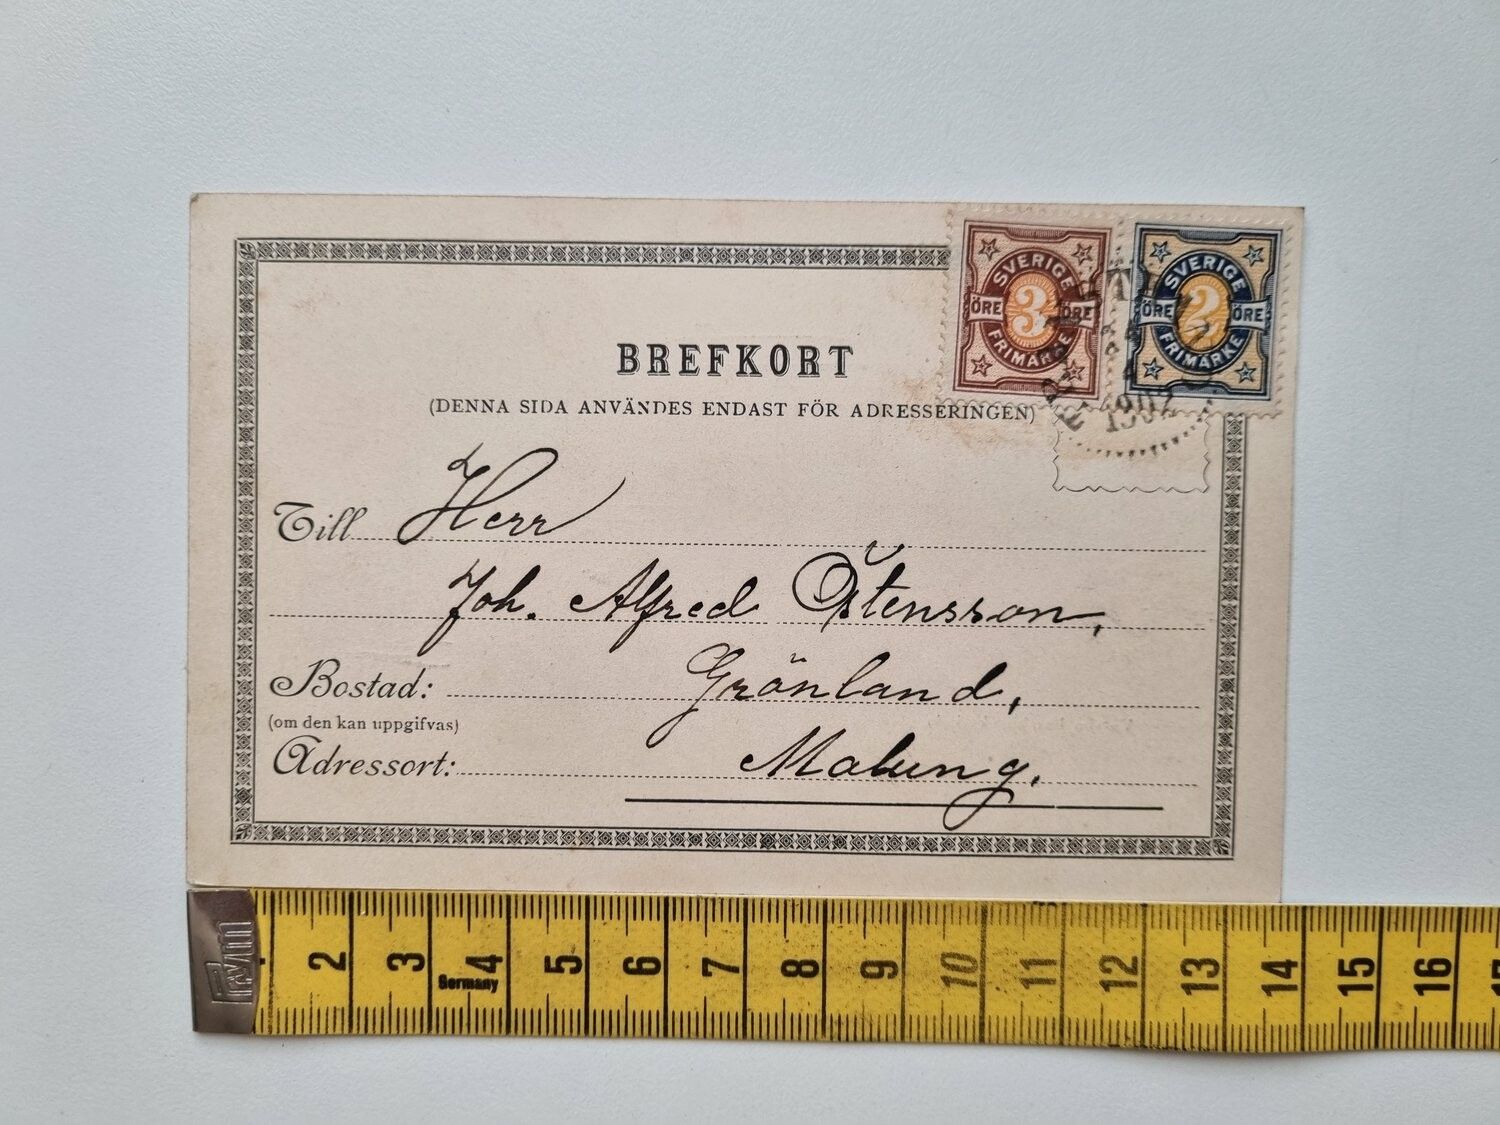 SVERIGE
ÖRE 3 ÖRE
FRIMÄRKE
SVERIGE
ÖRE 2 ÖRE
FRIMÄRKE
1902
BREFKORT
(DENNA SIDA ANVÄNDES ENDAST FÖR ADRESSERINGEN)
Till Herr
Joh. Alfred Östensson,
Bostad: Grönland,
(om den kan uppgifvas)
Adressort: Malung.
Prym
2 3 4 5 6 7 8 9 10 11 12 13 14 15 16
Germany